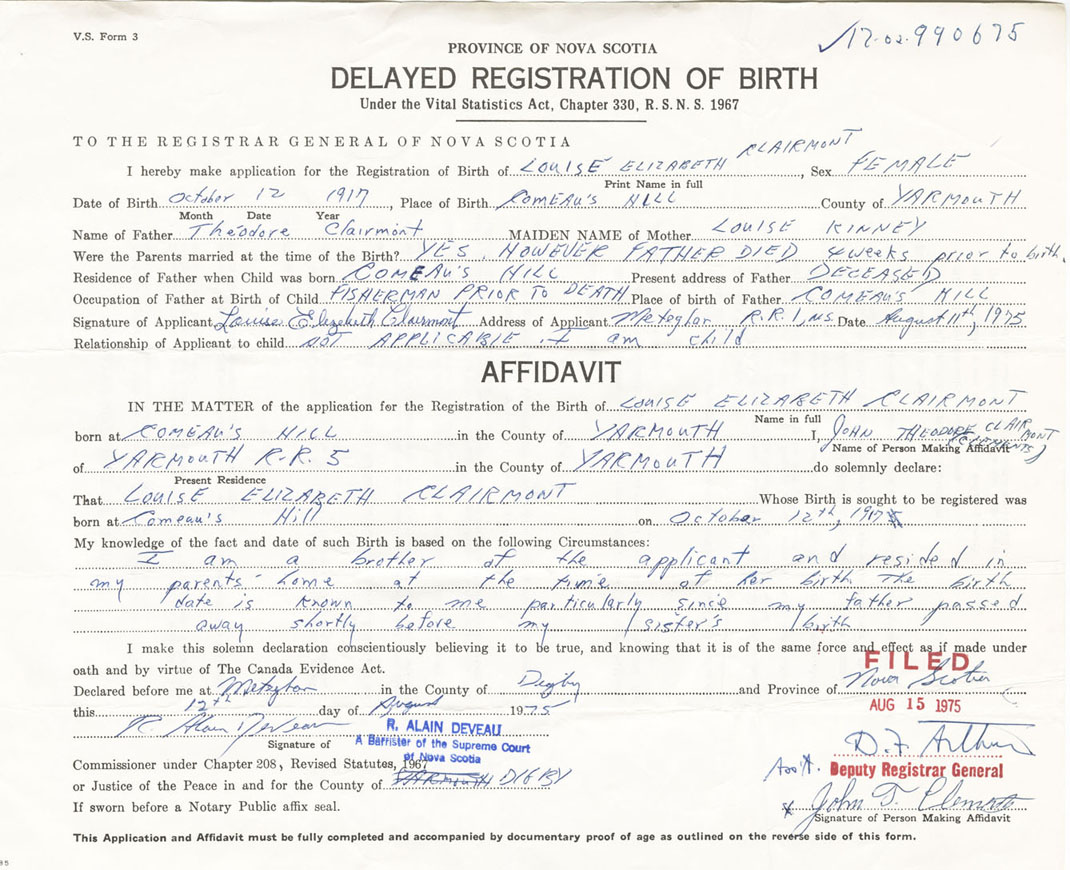 V.S. Form 3
✓17-02-990675
PROVINCE OF NOVA SCOTIA
DELAYED REGISTRATION OF BIRTH
Under the Vital Statistics Act, Chapter 330, R.S.N.S. 1967
TO THE REGISTRAR GENERAL OF NOVA SCOTIA
I hereby make application for the Registration of Birth of LOUISE ELIZABETH CLAIRMONT, Sex FEMALE
Print Name in full
Date of Birth October 12 1917, Place of Birth COMEAU'S HILL County of YARMOUTH
Month Date Year
Name of Father Theodore Clairmont MAIDEN NAME of Mother LOUISE KINNEY
Were the Parents married at the time of the Birth? YES, HOWEVER FATHER DIED 4 weeks prior to birth.
Residence of Father when Child was born COMEAU'S HILL Present address of Father DECEASED
Occupation of Father at Birth of Child FISHERMAN PRIOR TO DEATH Place of birth of Father COMEAU'S HILL
Signature of Applicant Louise Elizabeth Clairmont Address of Applicant Meteghan R.R.1, N.S. Date August 11th, 1975
Relationship of Applicant to child NOT APPLICABLE. I am child
AFFIDAVIT
IN THE MATTER of the application for the Registration of the Birth of LOUISE ELIZABETH CLAIRMONT
Name in full
born at COMEAU'S HILL in the County of YARMOUTH I, JOHN THEODORE CLAIRMONT (CLEMENTS)
Name of Person Making Affidavit
of YARMOUTH R.R. 5 in the County of YARMOUTH do solemnly declare:
Present Residence
That LOUISE ELIZABETH CLAIRMONT Whose Birth is sought to be registered was
born at Comeau's Hill on October 12th, 1917
My knowledge of the fact and date of such Birth is based on the following Circumstances:
I am a brother of the applicant and resided in
my parents' home at the time of her birth The birth
date is known to me particularly since my father passed
away shortly before my sister's birth
I make this solemn declaration conscientiously believing it to be true, and knowing that it is of the same force and effect as if made under
oath and by virtue of The Canada Evidence Act.
FILED
Declared before me at Meteghan in the County of Digby and Province of Nova Scotia
this 12th day of August 1975
AUG 15 1975
R. Alain Deveau
R. ALAIN DEVEAU
Signature of
A Barrister of the Supreme Court
of Nova Scotia
D.F. Arthur
Commissioner under Chapter 208, Revised Statutes, 1967
Ass't. Deputy Registrar General
or Justice of the Peace in and for the County of YARMOUTH DIGBY
x John T. Clements
If sworn before a Notary Public affix seal.
Signature of Person Making Affidavit
This Application and Affidavit must be fully completed and accompanied by documentary proof of age as outlined on the reverse side of this form.